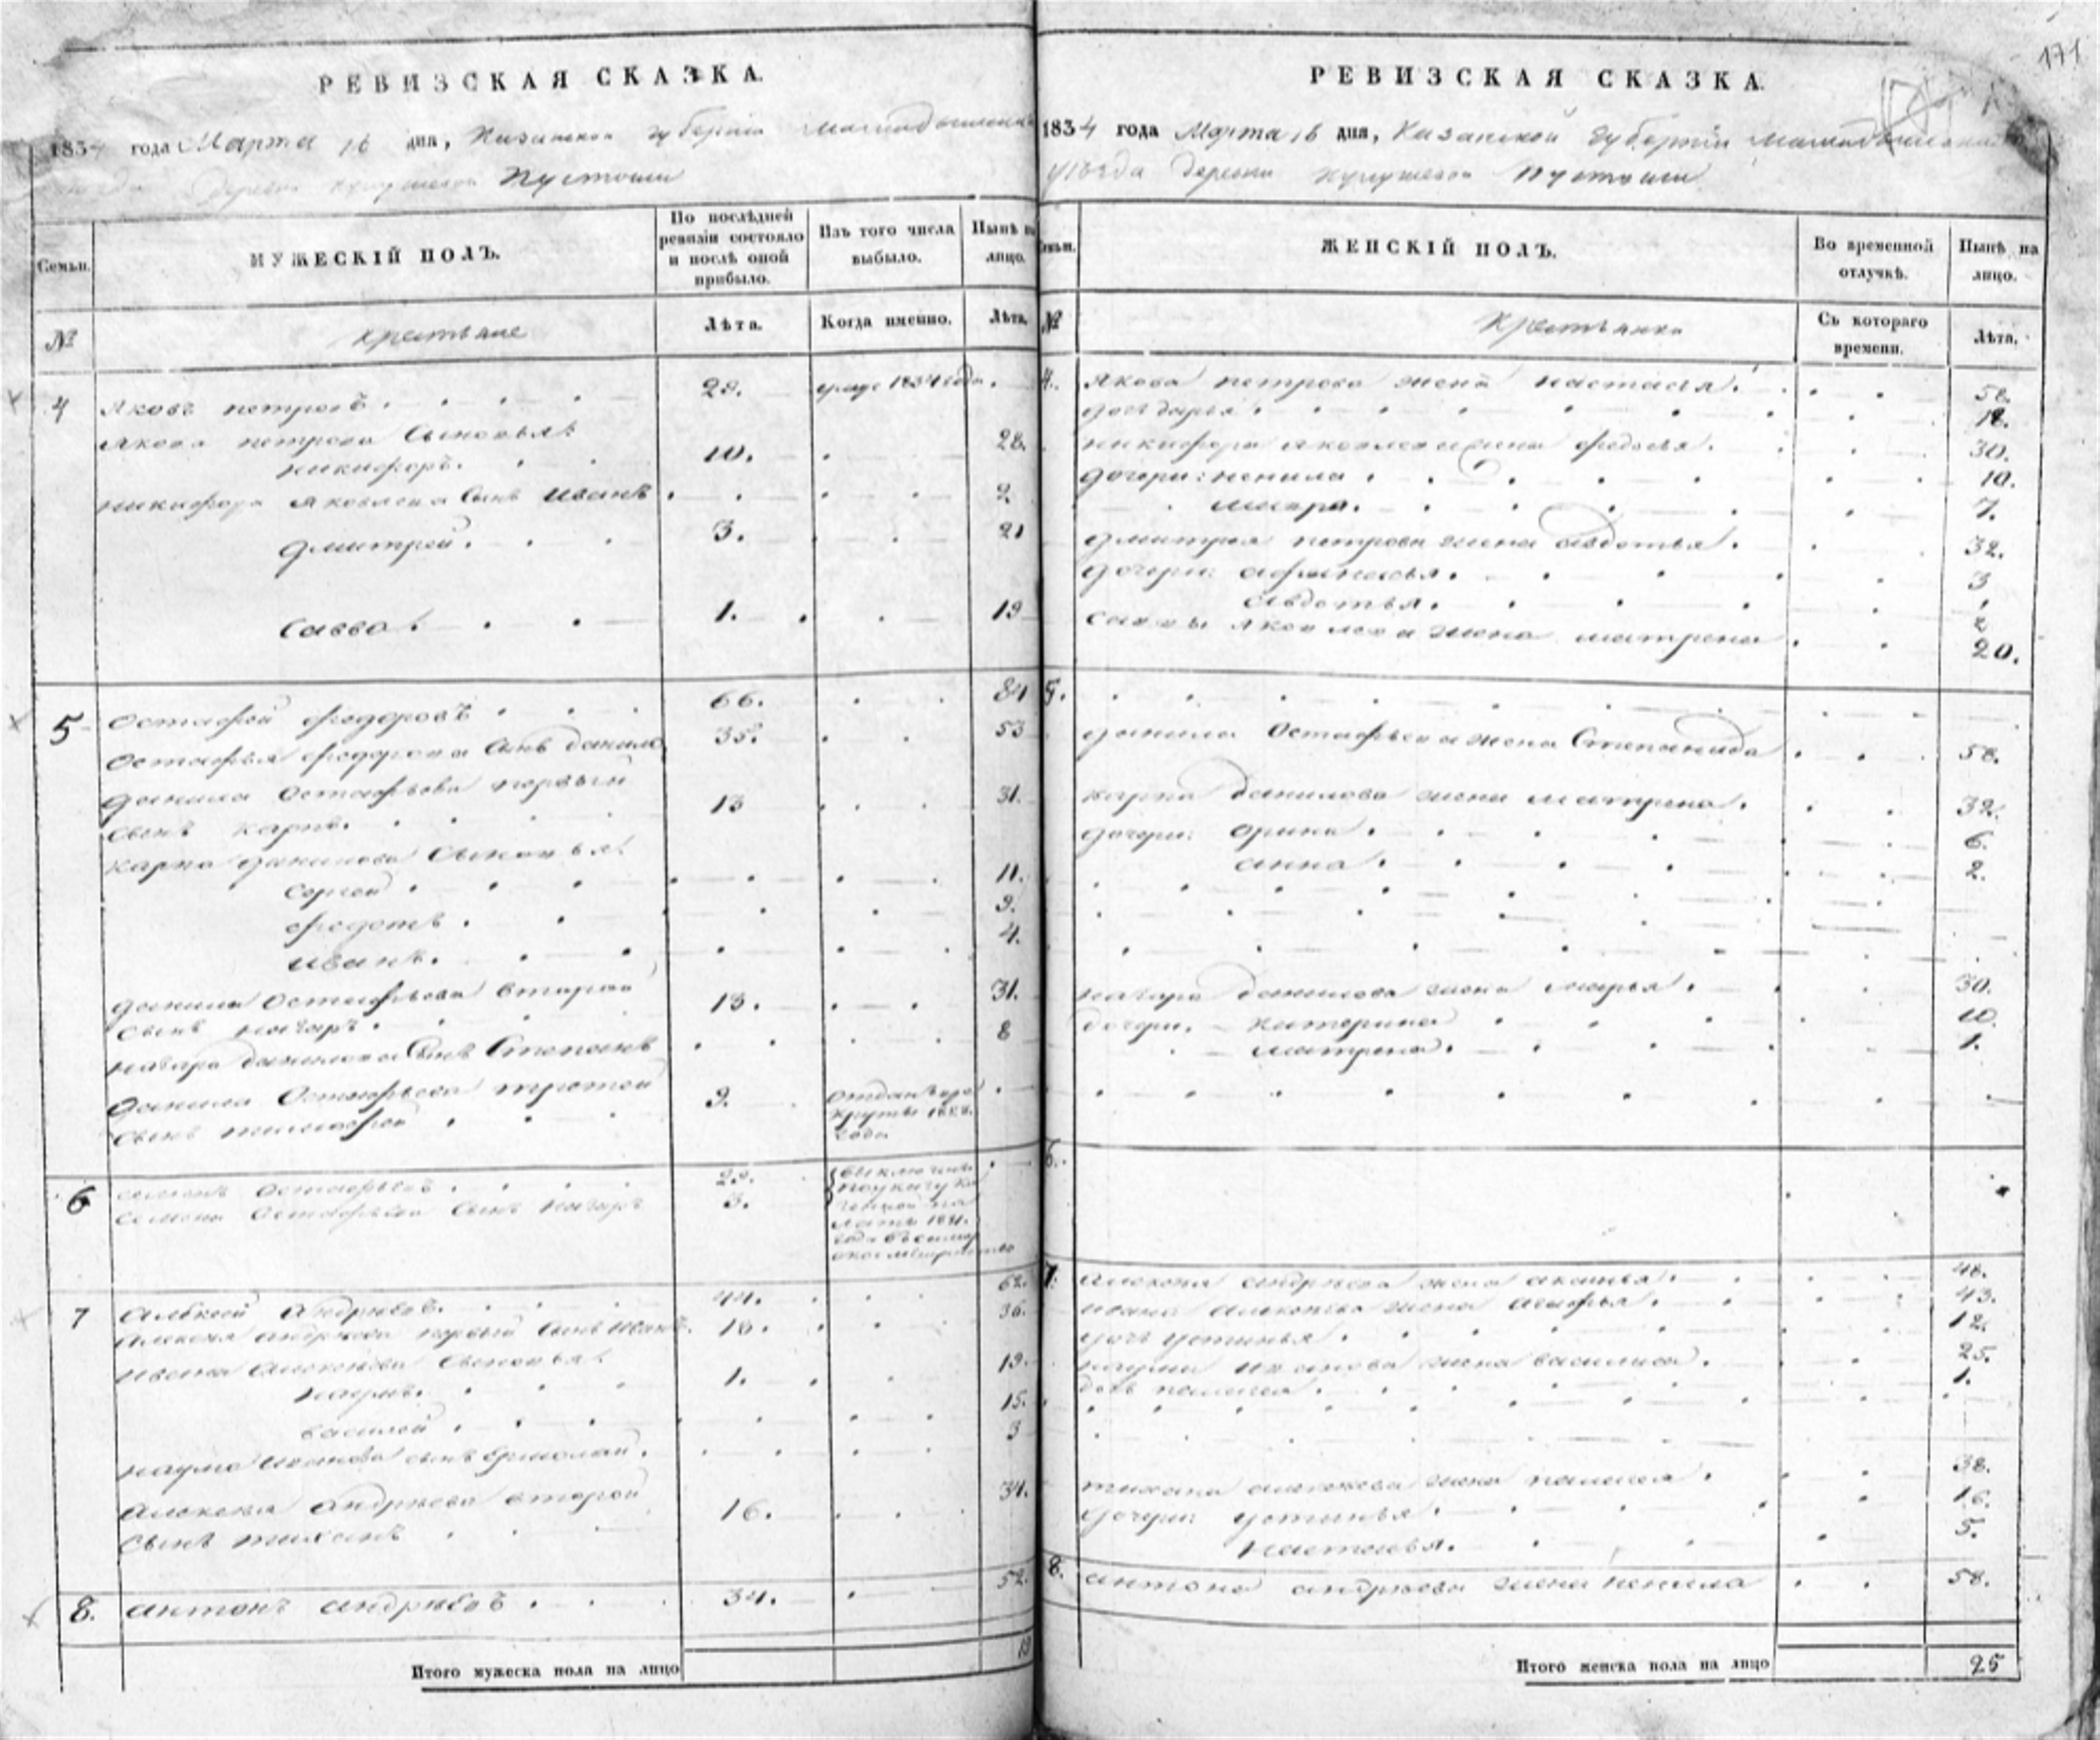 171
РЕВИЗСКАЯ СКАЗКА.
1834 года Марта 16 дня, Казанской губернии
деревни Пустоши
Семьи. МУЖЕСКІЙ ПОЛЪ. По послѣдней ревизіи состояло и послѣ оной прибыло. Изъ того числа выбыло. Нынѣ на лицо.
№ крестьяне Лѣта. Когда именно. Лѣта.
4 Яковъ петровъ. 29. умре 1834 года.
Якова петрова Сыновья:
никифоръ. 10. 28.
никифора Яковлева Сынъ Иванъ 2
дмитрей. 3. 21
Савва. 1. 19
5 Остафей федоровъ 66. 84
Остафья федорова Сынъ данило 35. 53
данила Остафьева первый
сынъ карпъ. 13 31.
карпа данилова Сыновья:
сергей 11.
федотъ. 9.
иванъ. 4.
данила Остафьева второй
сынъ назаръ. 13. 31.
назара данилова Сынъ Степанъ 8
данила Остафьева третей
сынъ тимофей 9. отданъ в рекруты года
6 семенъ Остафьевъ. 29.
семена Остафьева Сынъ назаръ 3.
7 Алексей Андреевъ. 44. 62.
Алексея андреева первый Сынъ Иванъ. 18. 36.
ивана Алексеева Сыновья:
наумъ. 1. 19.
василей. 15.
наума Иванова сынъ Ермолай. 3
Алексея андреева второй
Сынъ тиханъ 16. 34.
8. антонъ андреевъ. 34. 52.
Итого мужеска пола на лицо
РЕВИЗСКАЯ СКАЗКА.
1834 года Марта 16 дня, Казанской губернии
уезда деревни Пустоши
Семьи. ЖЕНСКІЙ ПОЛЪ. Во временной отлучкѣ. Нынѣ на лицо.
№ Крестьянки Съ котораго времени. Лѣта.
4. Якова петрова жена настасья. 58.
дочь дарья. 18.
никифора яковлева жена федосья. 30.
дочери: ненила 10.
марья. 7.
дмитрея петрова жена авдотья. 32.
дочери: афанасья. 3
авдотья.
саввы яковлева жена матрена 20.
5.
данила Остафьева жена Степанида 58.
карпа данилова жена матрена. 32.
дочери: орина. 6.
анна. 2.
назара данилова жена марья. 30.
дочери. катерина 10.
матрена. 1.
6.
7. алексея андреева жена аксинья. 48.
ивана алексеева жена агафья. 43.
дочь устинья. 12.
наума иванова жена василиса. 25.
дочь пелагея. 1.
тихана алексеева жена пелагея. 38.
дочери: устинья. 16.
настасья. 5.
8. антона андреева жена ненила 58.
Итого женска пола на лицо 25